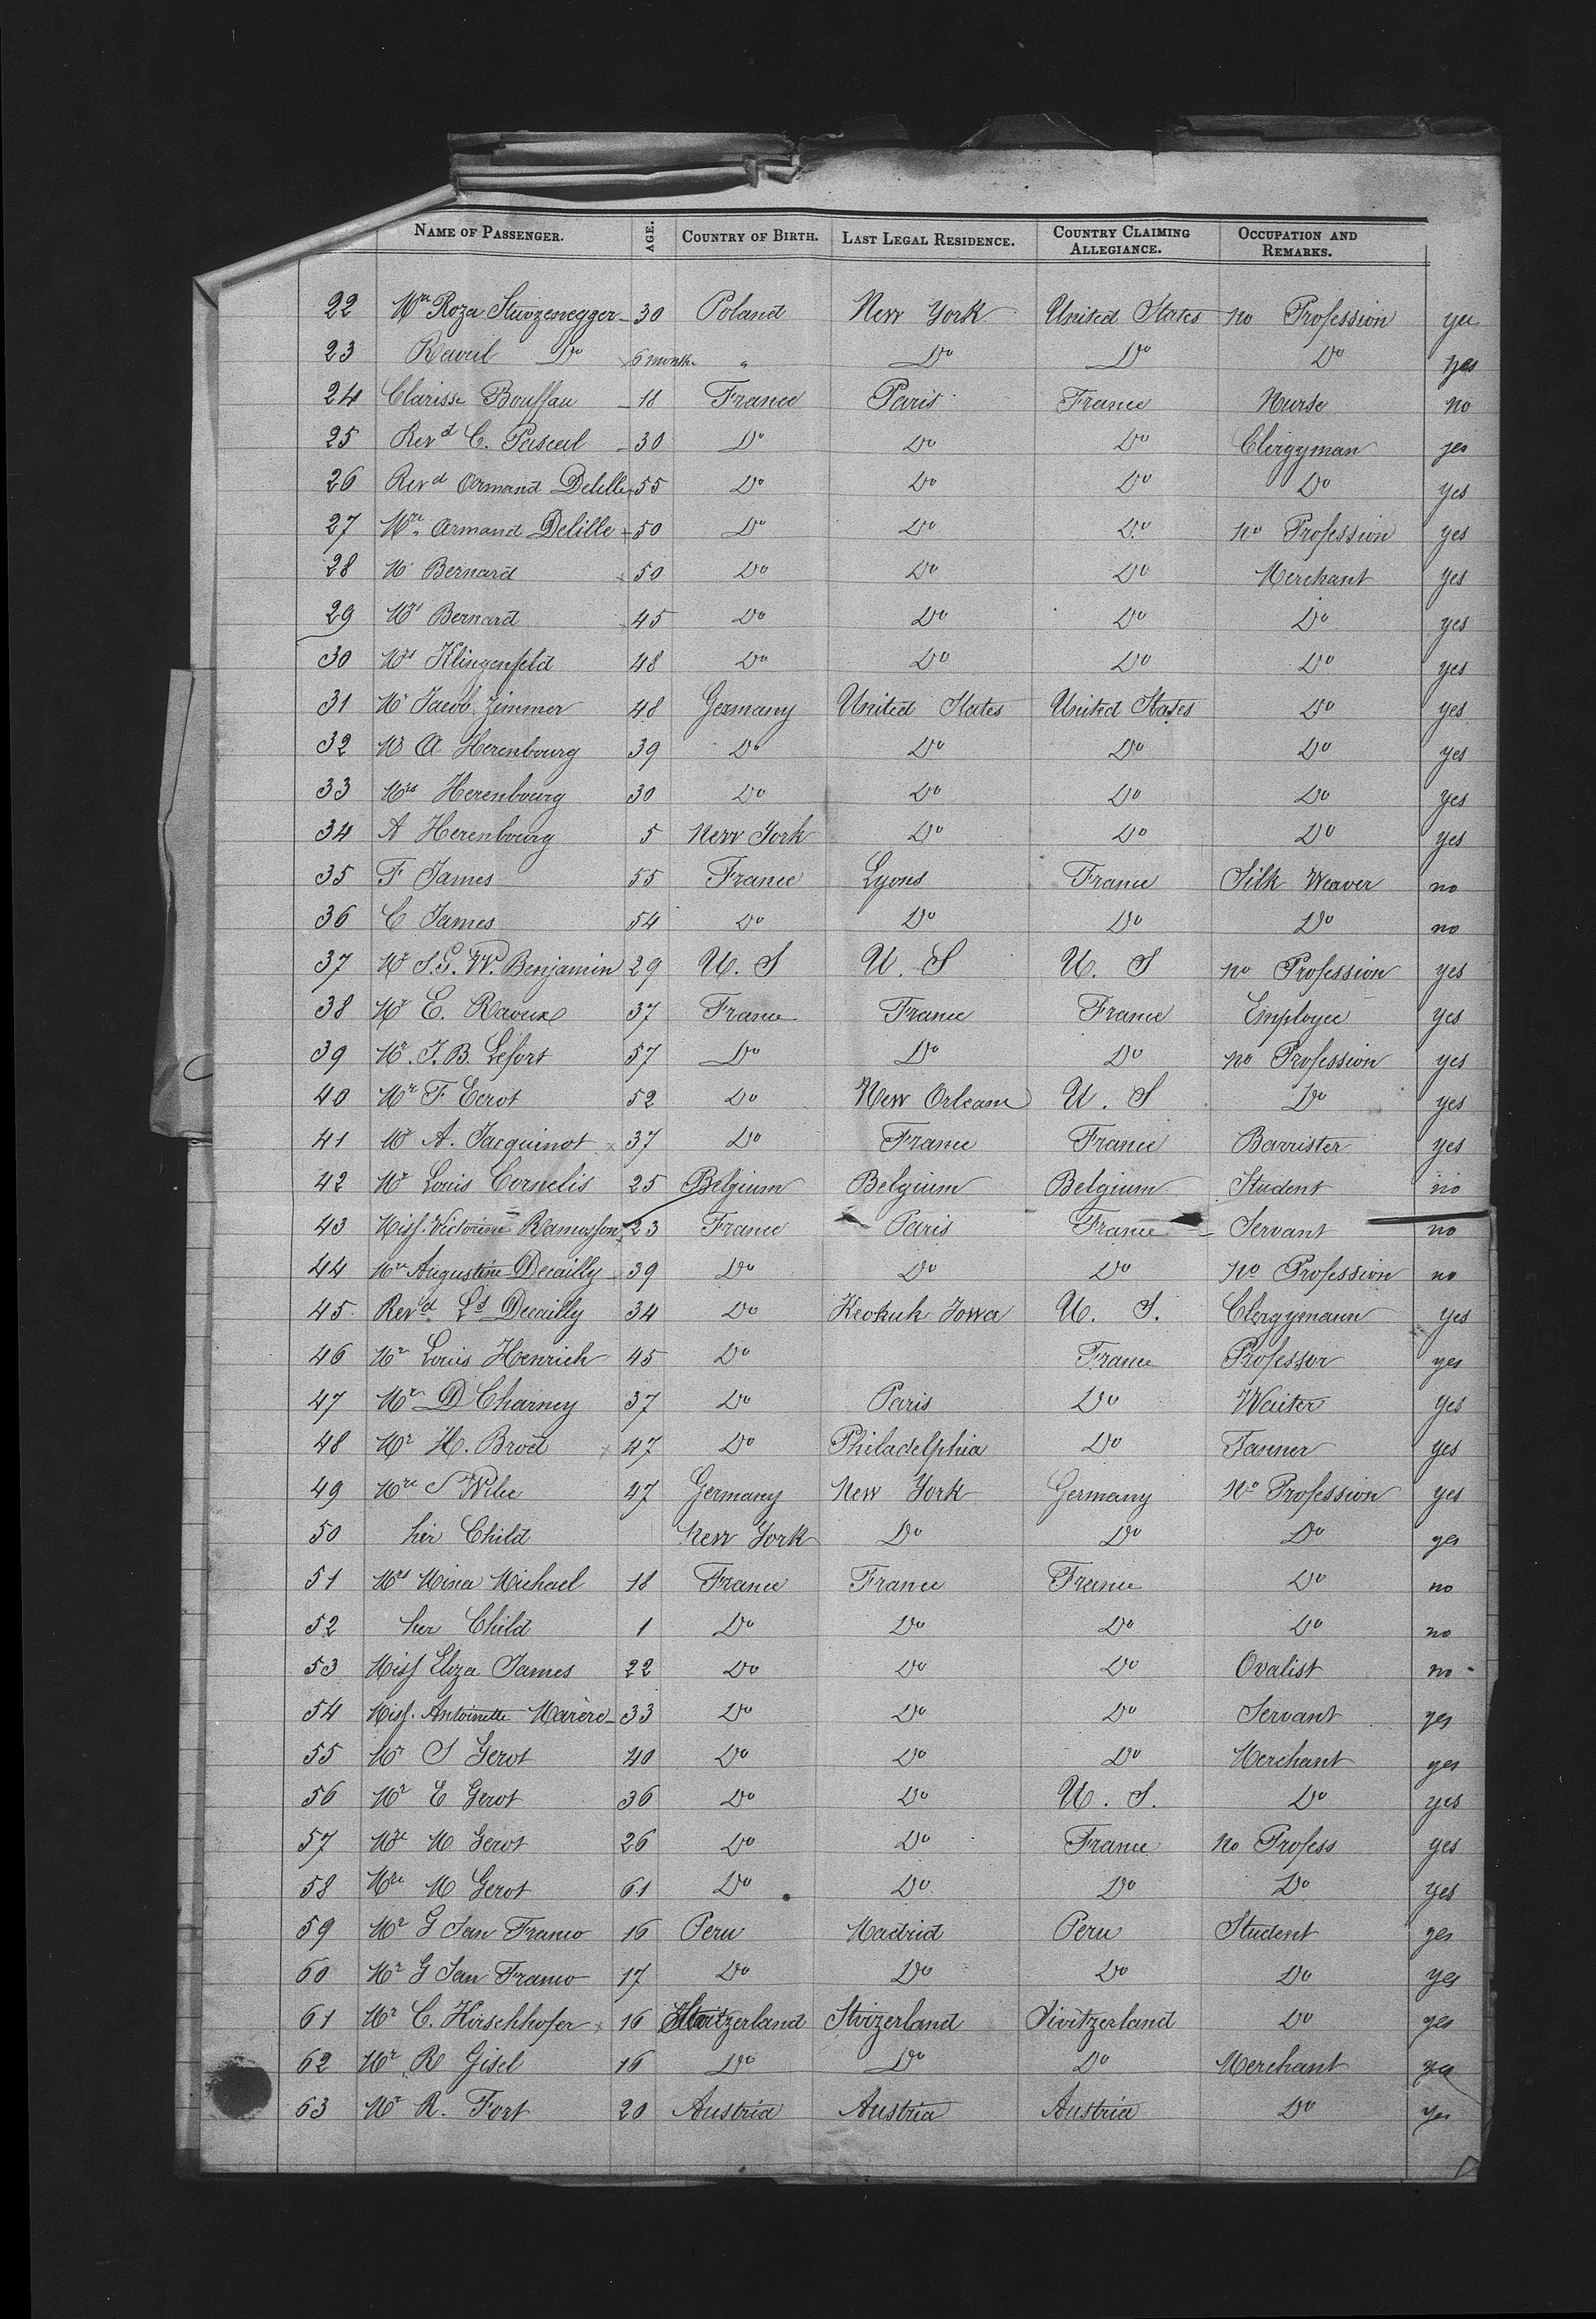 NAME OF PASSENGER. AGE. COUNTRY OF BIRTH. LAST LEGAL RESIDENCE. COUNTRY CLAIMING ALLEGIANCE. OCCUPATION AND REMARKS.
22 Mre Roza Sturzenegger 30 Poland New York United States no Profession yes
23 Raoul Do 6 months " Do Do Do yes
24 Clarisse Bouffau 18 France Paris France Nurse no
25 Revd C. Pascal 30 Do Do Do Clergyman yes
26 Revd Armand Delille 55 Do Do Do Do yes
27 Mre Armand Delille 50 Do Do Do no Profession yes
28 Mr Bernard 50 Do Do Do Merchant yes
29 Mrs Bernard 45 Do Do Do Do yes
30 Mrs Klingenfeld 48 Do Do Do Do yes
31 Mr Jacob Zimmer 48 Germany United States United States Do yes
32 Mr A Herenbourg 39 Do Do Do Do yes
33 Mrs Herenbourg 30 Do Do Do Do yes
34 A Herenbourg 5 New York Do Do Do yes
35 F James 55 France Lyons France Silk Weaver no
36 C James 54 Do Do Do Do no
37 Mr S.G.W. Benjamin 29 U. S U. S U. S no Profession yes
38 Mr E. Raveux 37 France France France Employee yes
39 Mr. J. B. Lefort 57 Do Do Do no Profession yes
40 Mr F Ecrot 52 Do New Orleans U. S Do yes
41 Mr A. Jacquinot 37 Do France France Barrister yes
42 Mr Louis Cornelis 25 Belgium Belgium Belgium Student no
43 Miss. Victorine 23 France Paris France Servant no
44 Mre Augustine Decailly 39 Do Do Do No Profession no
45 Revd. Ls Decailly 34 Do Keokuk Iowa U. S. Clergymann yes
46 Mr Louis Henrich 45 Do France Professor yes
47 Mr D Charney 37 Do Paris Do Waiter yes
48 Mr H. Broël 47 Do Philadelphia Do Tanner yes
49 Mre S 47 Germany New York Germany No Profession yes
50 her Child New York Do Do Do yes
51 Mrs Mina Michael 18 France France France Do no
52 her Child 1 Do Do Do Do no
53 Miss Eliza James 22 Do Do Do Ovalist no
54 Miss. Antoinette Marère 33 Do Do Do Servant yes
55 Mr S Gerot 40 Do Do Do Merchant yes
56 Mr E Gerot 36 Do Do U. S. Do yes
57 Mre M Gerot 26 Do Do France no Profess yes
58 Mre M Gerot 61 Do Do Do Do yes
59 Mr G San Franco 16 Peru Madrid Peru Student yes
60 Mr G San Franco 17 Do Do Do Do yes
61 Mr C. Hirschhofer 16 Switzerland Stvizerland Sivitzerland Do yes
62 Mr R Gisel 16 Do Do Do Merchant yes
63 Mr R. Fort 20 Austria Austria Austria Do yes